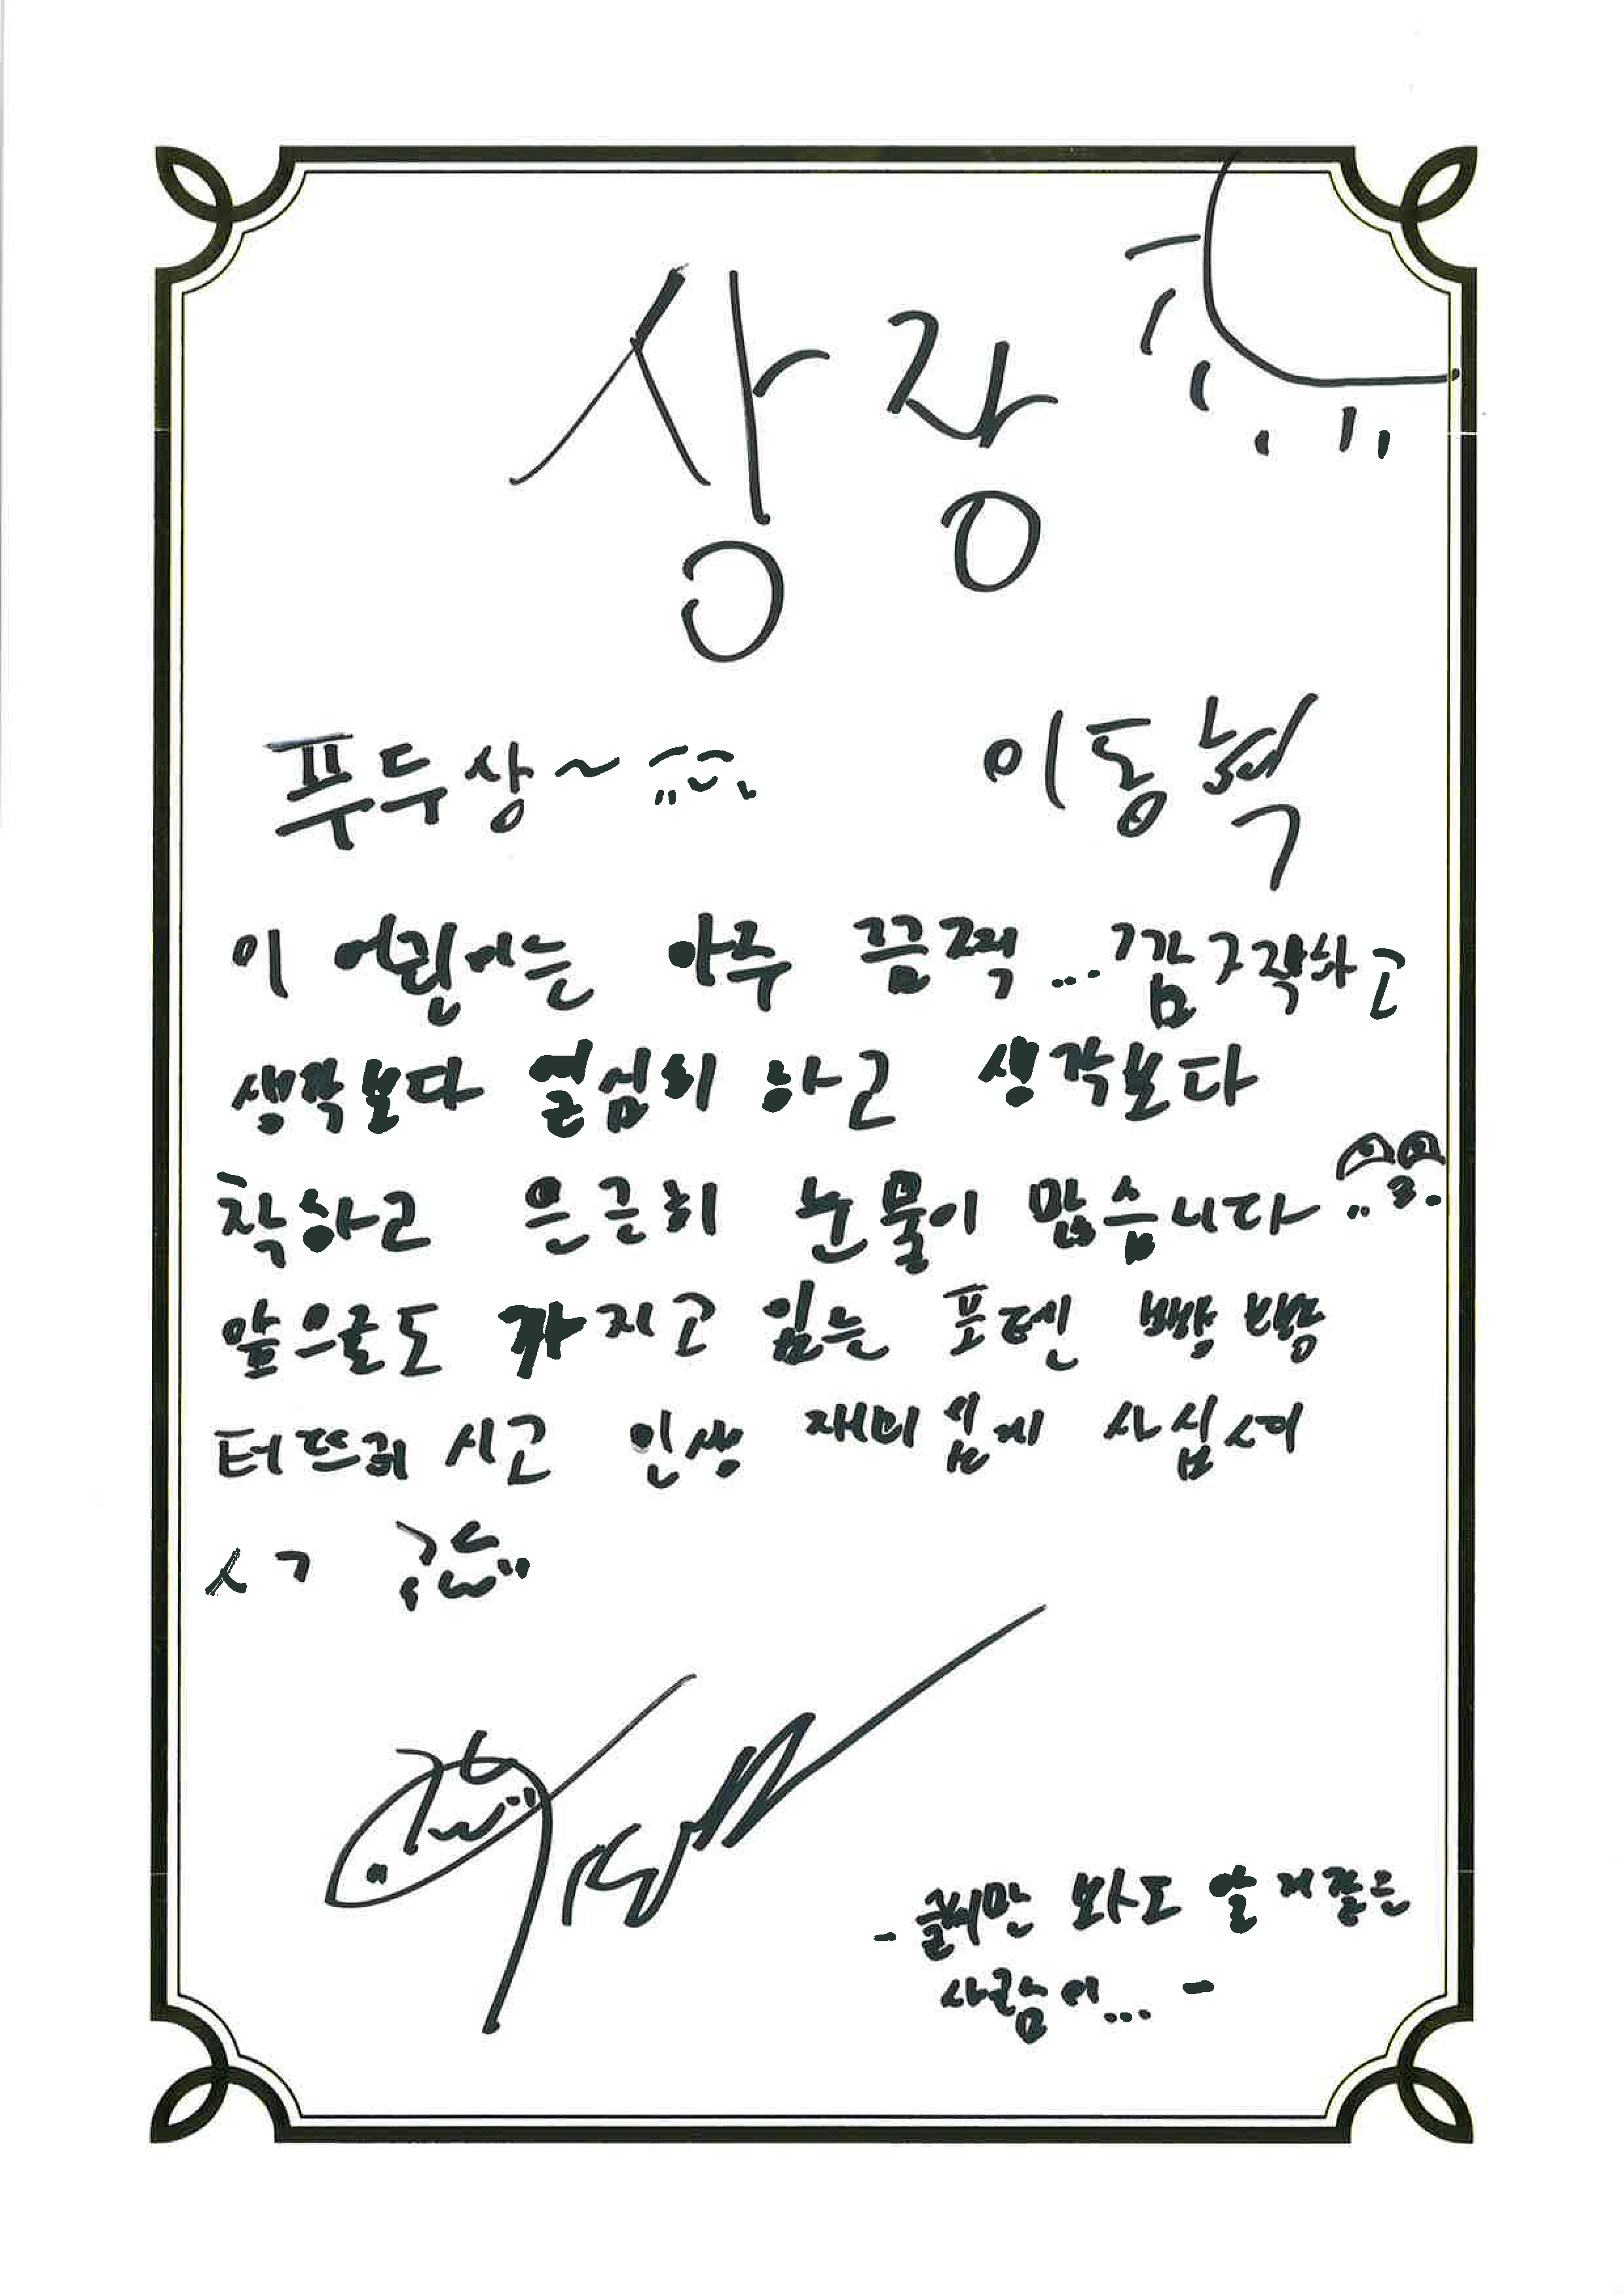 상장
푸두상~ 이동혁
이 어린이는 아주 끔찍...깜 구작하고
생각보다 열심히 하고 생각보다
착하고 은근히 눈물이 많습니다
앞으로도 가지고 있는 포텐 빵빵
터뜨려시고 인생 재미있게 사십셔
ㅅㄱ
- 글씨만 봐도 알 거같은
사람이... -